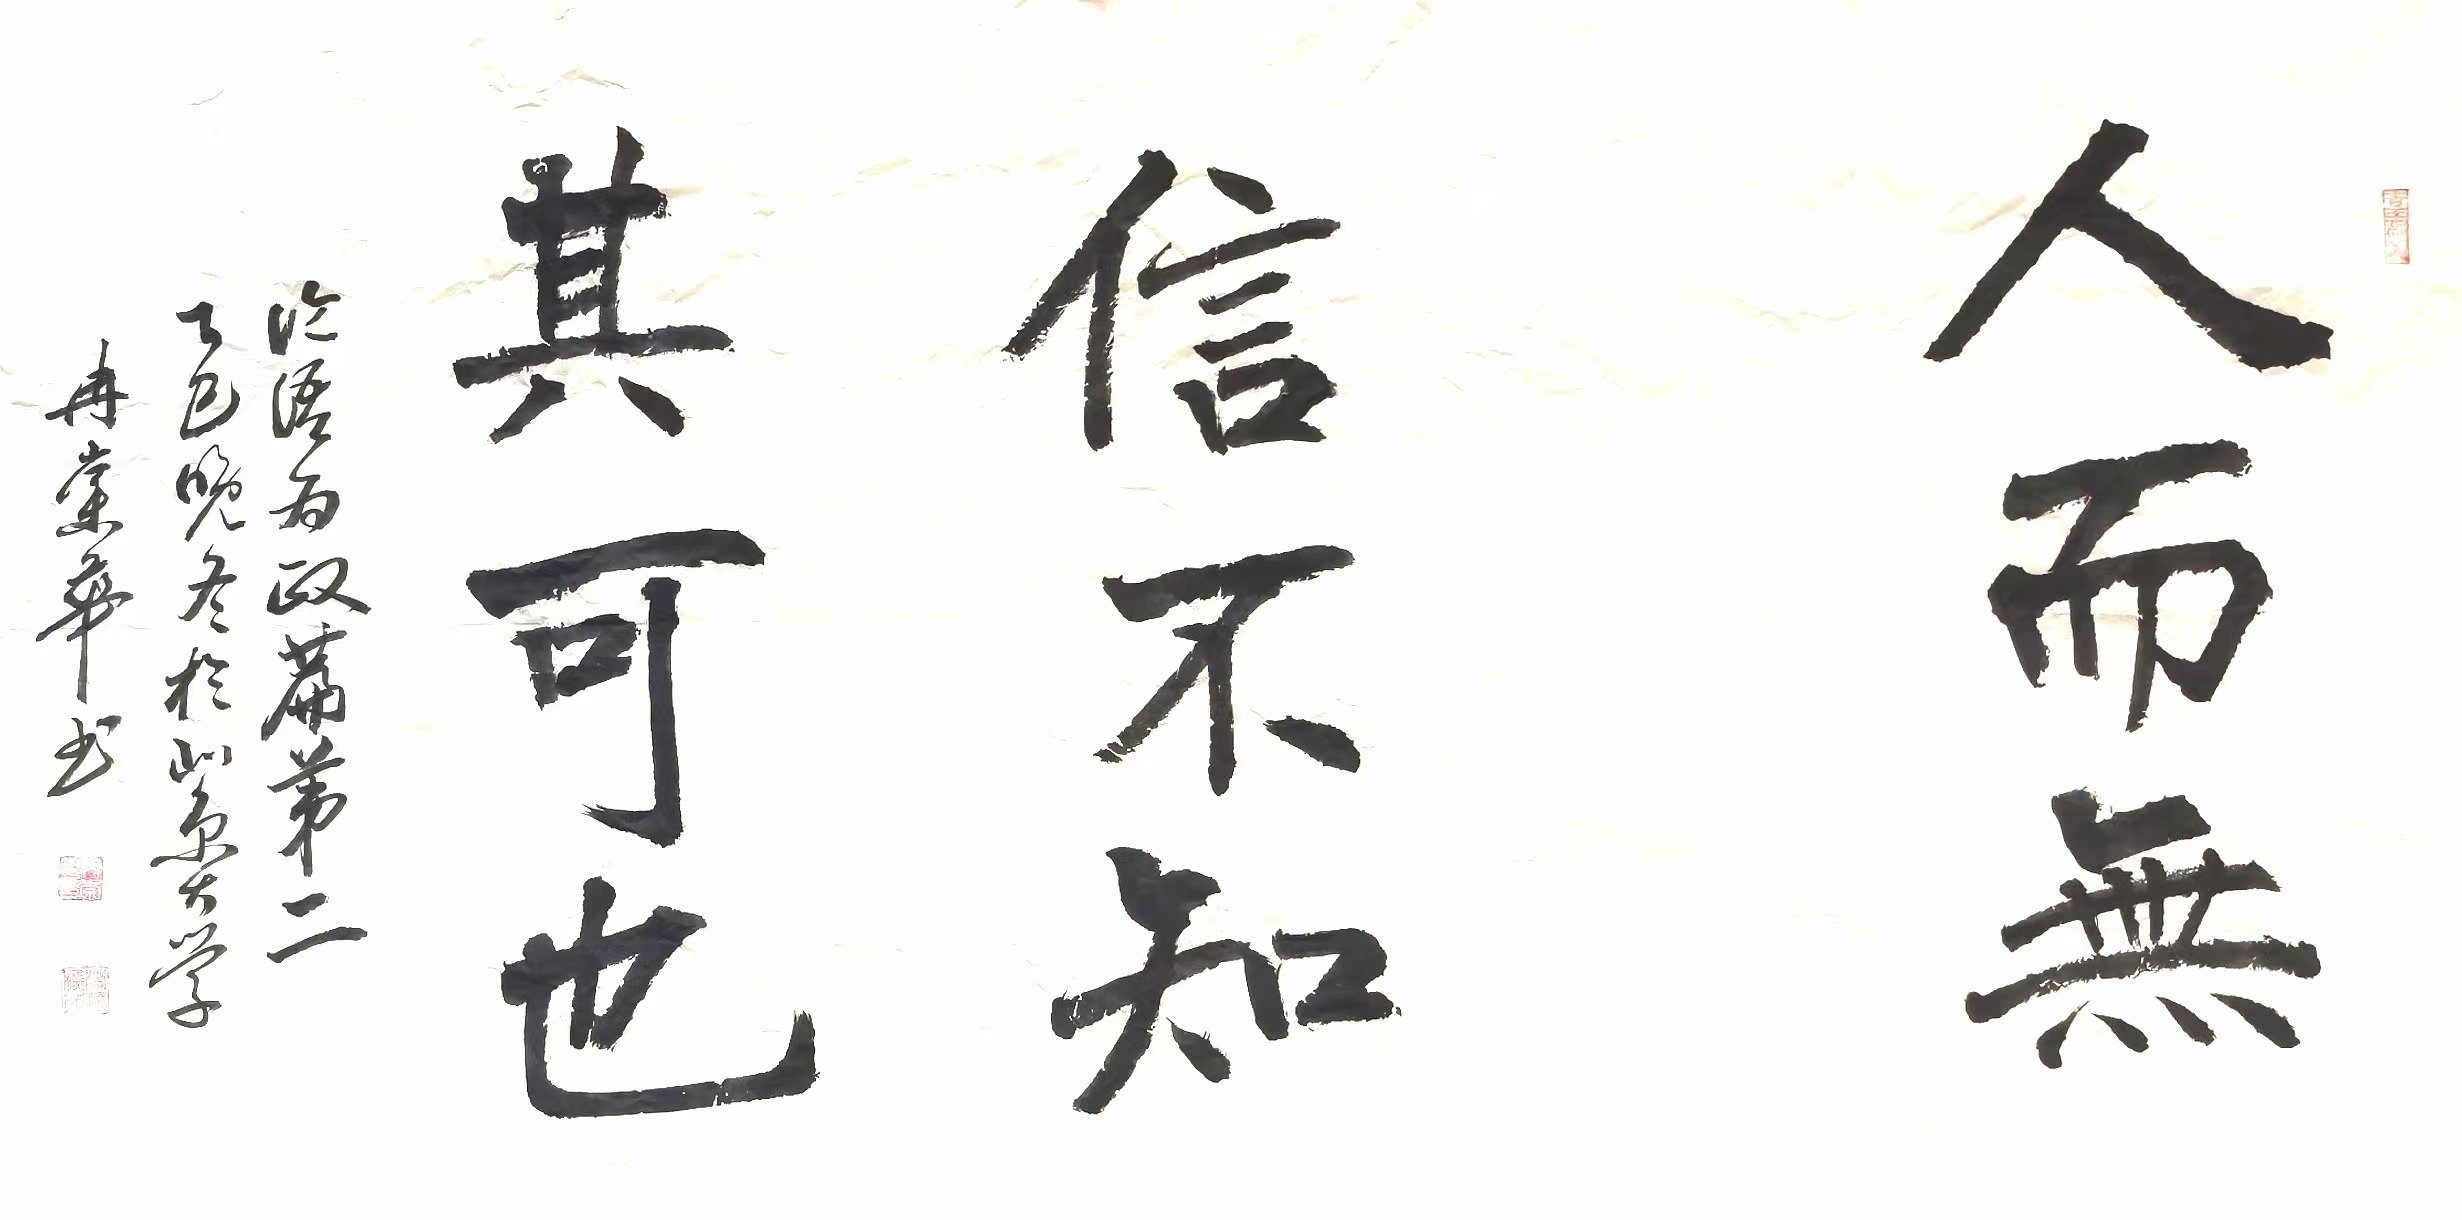 人而無
信不知
其可也
论语为政篇第二
乙巳晚冬於北京大学
冉棠華书